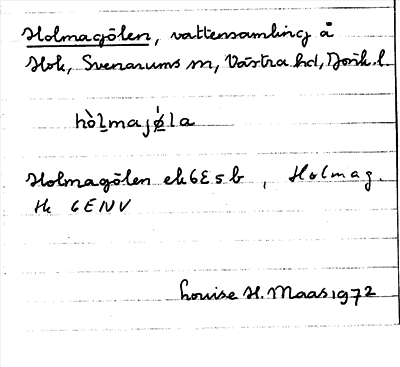 Holmagölen, vattensamling å
Hok, Svenarums sn, Västra hd, Jönk. l.
hòlmajǿla
Holmagölen ek 6E5b, Holmag.
Hk 6ENV
Louise H. Maas 1972